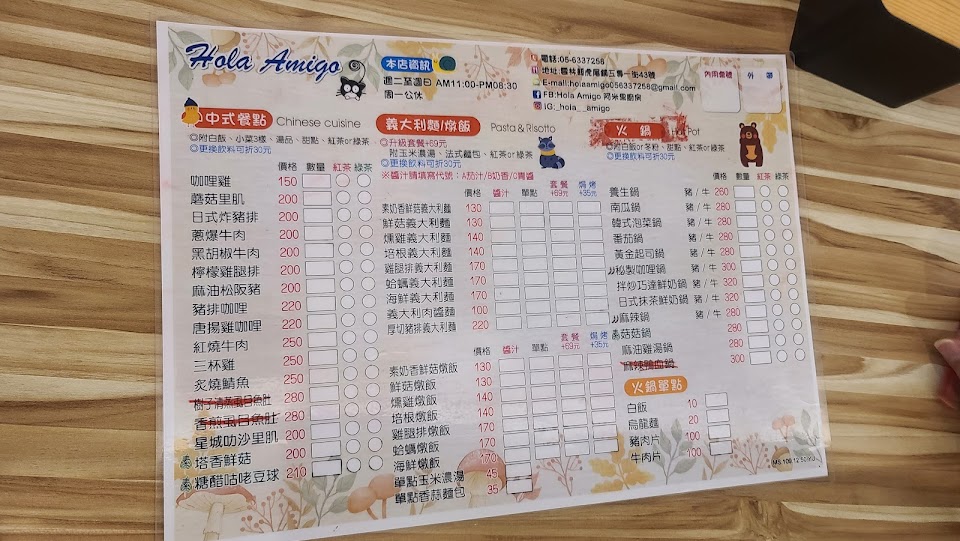 Hola Amigo
本店資訊
週二至週日 AM11:00-PM08:30
週一公休
電話:05-6337258
地址:雲林縣虎尾鎮五專一街43號
E-mail:holaamigo056337258@gmail.com
FB:Hola Amigo 阿米果廚房
IG:_hola__amigo
內用桌號
外帶
中式餐點 Chinese cuisine
◎附白飯、小菜3樣、湯品、甜點、紅茶or綠茶
◎更換飲料可折30元
價格 數量 紅茶 綠茶
咖哩雞 150
蘑菇里肌 200
日式炸豬排 200
蔥爆牛肉 200
黑胡椒牛肉 200
檸檬雞腿排 200
麻油松阪豬 200
豬排咖哩 220
唐揚雞咖哩 220
紅燒牛肉 250
三杯雞 250
炙燒鯖魚 250
樹子清蒸虱目魚肚 280
香煎虱目魚肚 280
星城叻沙里肌 200
塔香鮮菇 200
糖醋咕咾豆球 210
義大利麵/燉飯 Pasta & Risotto
◎升級套餐+69元
附玉米濃湯、法式麵包、紅茶or綠茶
◎更換飲料可折30元
※醬汁請填寫代號：A茄汁/B奶香/C青醬
價格 醬汁 單點 套餐+69元 焗烤+35元
素奶香鮮菇義大利麵 130
鮮菇義大利麵 130
燻雞義大利麵 140
培根義大利麵 140
雞腿排義大利麵 170
蛤蠣義大利麵 170
海鮮義大利麵 170
義大利肉醬麵 100
厚切豬排義大利麵 220
價格 醬汁 單點 套餐+69元 焗烤+35元
素奶香鮮菇燉飯 130
鮮菇燉飯 130
燻雞燉飯 140
培根燉飯 140
雞腿排燉飯 170
蛤蠣燉飯 170
海鮮燉飯 170
單點玉米濃湯 45
單點香蒜麵包 35
火鍋 Hot Pot
◎附白飯or冬粉、甜點、紅茶or綠茶
◎更換飲料可折30元
價格 數量 紅茶 綠茶
養生鍋 豬/牛 260
南瓜鍋 豬/牛 280
韓式泡菜鍋 豬/牛 280
番茄鍋 豬/牛 280
黃金起司鍋 豬/牛 280
秘製咖哩鍋 豬/牛 300
拌炒巧達鮮奶鍋 豬/牛 300
日式抹茶鮮奶鍋 豬/牛 320
麻辣鍋 豬/牛 280
菇菇鍋 280
麻油雞湯鍋 280
麻辣鴨血鍋 300
火鍋單點
白飯 10
烏龍麵 20
豬肉片 100
牛肉片 100